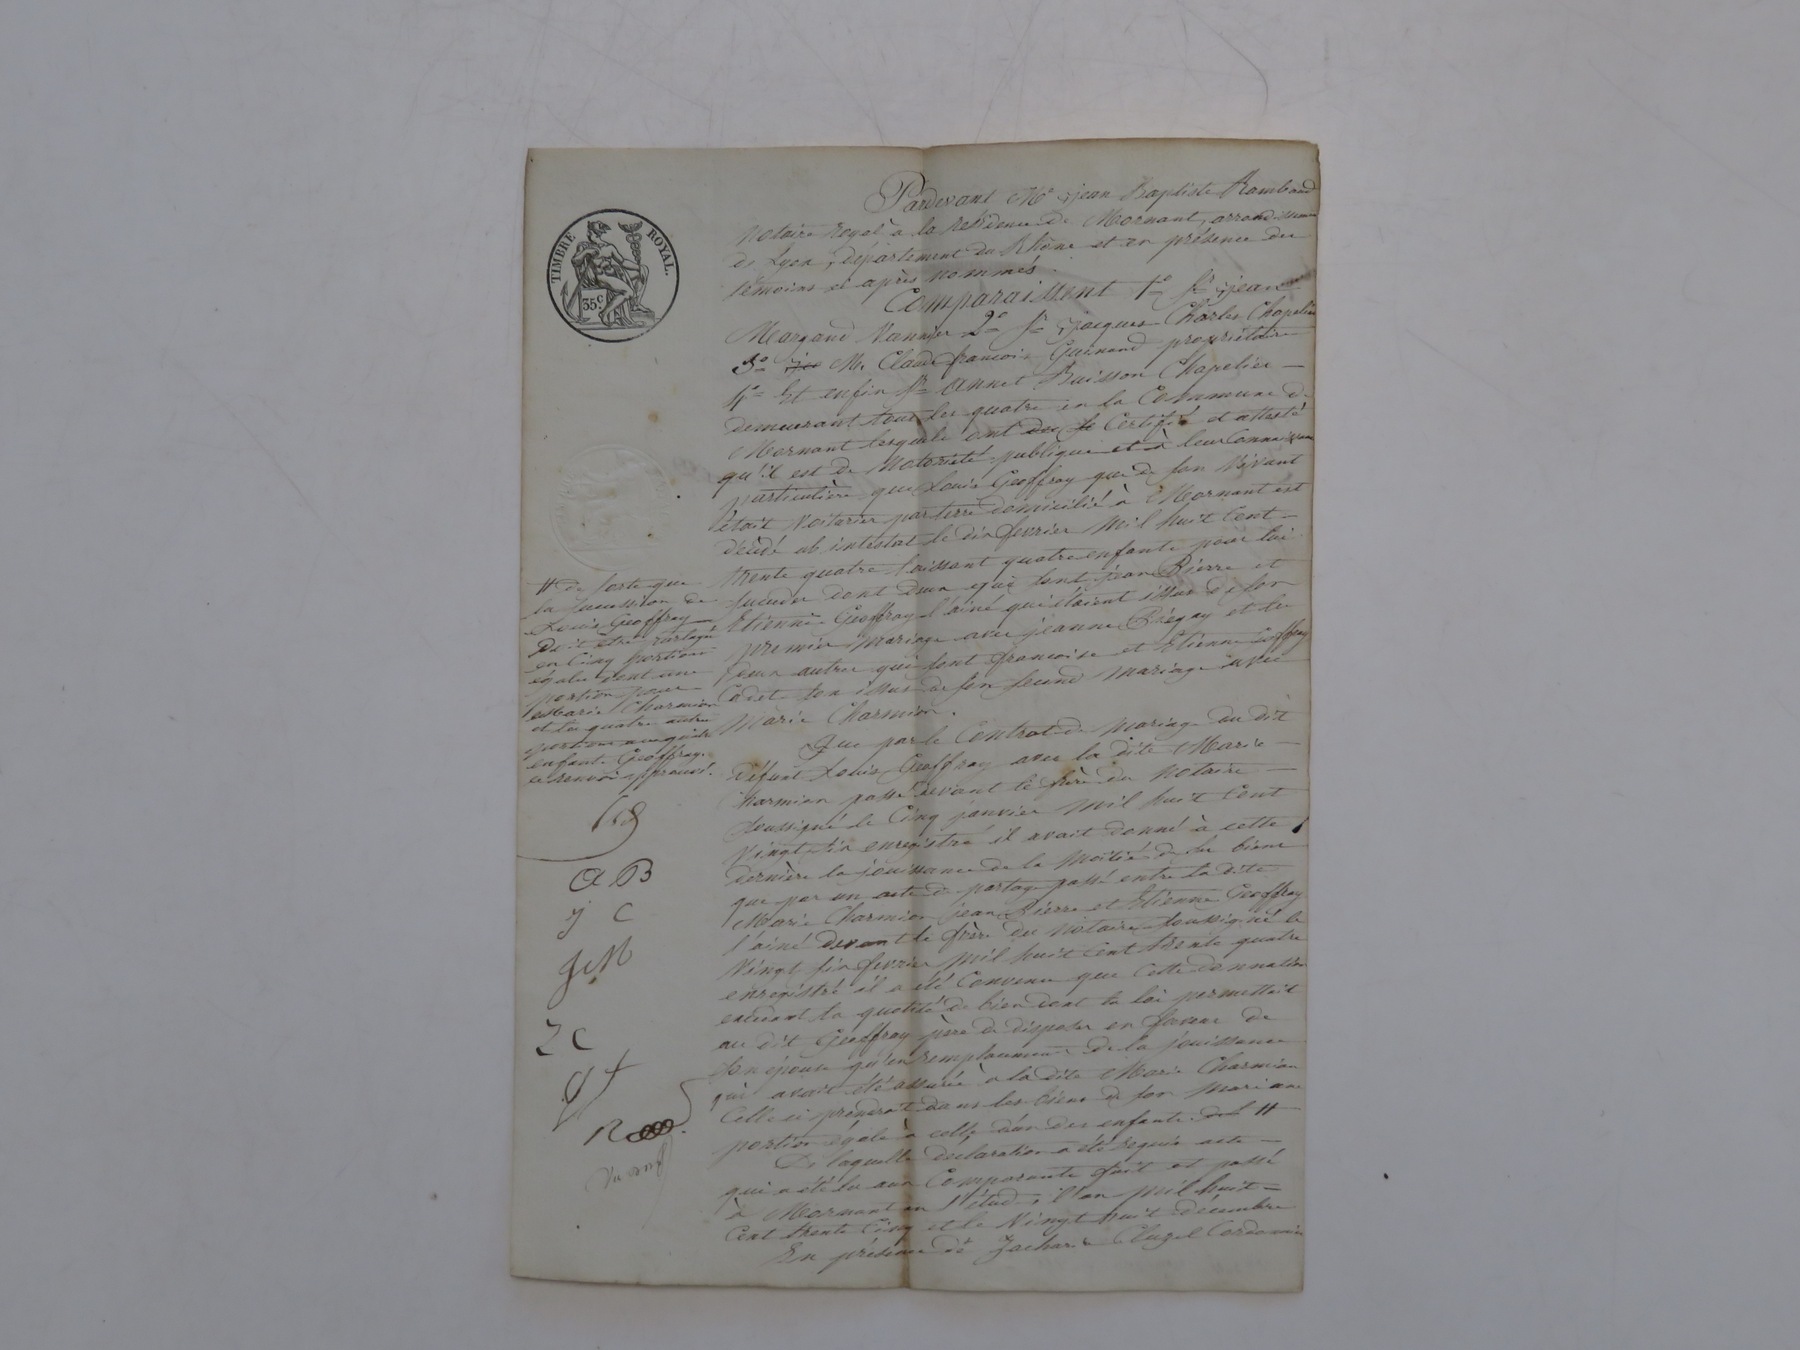 TIMBRE ROYAL.
35 c
Pardevant Me jean Baptiste Rambaud
Notaire Royal à la Résidence de Mornant, arrondissement
de Lyon, département du Rhône et en présence des
témoins ci après nommés.
Comparaissent 1o Sr jean
Margand Vannier 2o Sr jacques Charles Chapelier
3o M. Claude françois Guinand propriétaire
4o Et enfin Sr annet Buisson Chapelier
demeurant tous les quatre en la Commune de
Mornant lesquels ont Certifié et attesté
qu'il est de Notoriété publique et à leur Connaissance
particulière que Louis Geoffray que de son Vivant
était Voiturier par terre domicilié à Mornant est
décédé ab intestat le dix fevrier Mil huit Cent
trente quatre laissant quatre enfants pour lui
succéder dont deux qui sont jean Pierre et
Etienne Geoffray l'ainé qui étaient issus de son
premier Mariage avec jeanne et les
deux autres qui sont françoise et Etienne Geoffray
Cadet son issus de son second Mariage avec
Marie Charmion.
Que par le Contrat de Mariage du dit
défunt Louis Geoffray avec la dite Marie
Charmion passé devant le frère du Notaire
soussigné le Cinq janvier Mil huit Cent
Vingt six enregistré il avait donné à cette
dernière la jouissance de la Moitié de ses biens
que par un acte de partage passé entre la dite
Marie Charmion jean Pierre et Etienne Geoffray
l'ainé devant le frère du Notaire soussigné le
Vingt six fevrier Mil huit Cent trente quatre
enregistré il a été Convenu que Cette donnation
excédant la quotité de bien dont la loi permettait
au dit Geoffray père de disposer en faveur de
son épouse qu'en remplacement de la jouissance
qui avait été assurée à la dite Marie Charmion
Celle ci prendrait dans les biens de son Mari une
portion égale à celle d'un des enfants #
De laquelle déclaration a été requis acte
qui a été lu aux Comparants fait et passé
à Mornant en l'étude l'an Mil huit
Cent trente Cinq et le Vingt huit décembre
En présence de Zacharie Clugel Cordonnier
# de sorte que
la succession de
Louis Geoffray
doit être partagé
en Cinq portions
égales dont une
portion pour
Marie Charmion
et les quatre autres
portions aux quatre
enfants Geoffray.
ce renvoi approuvé.
A B
J C
J M
Z C
R